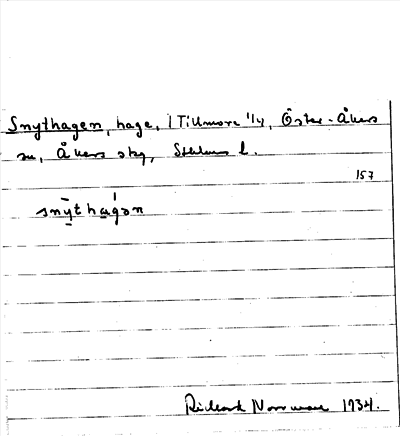 Snythagen, hage, i Tillmora 1/4, Öster-Åkers
sn, Åkers skg, Sthlms l.
157
snythagən
Rickard Norrman 1934.